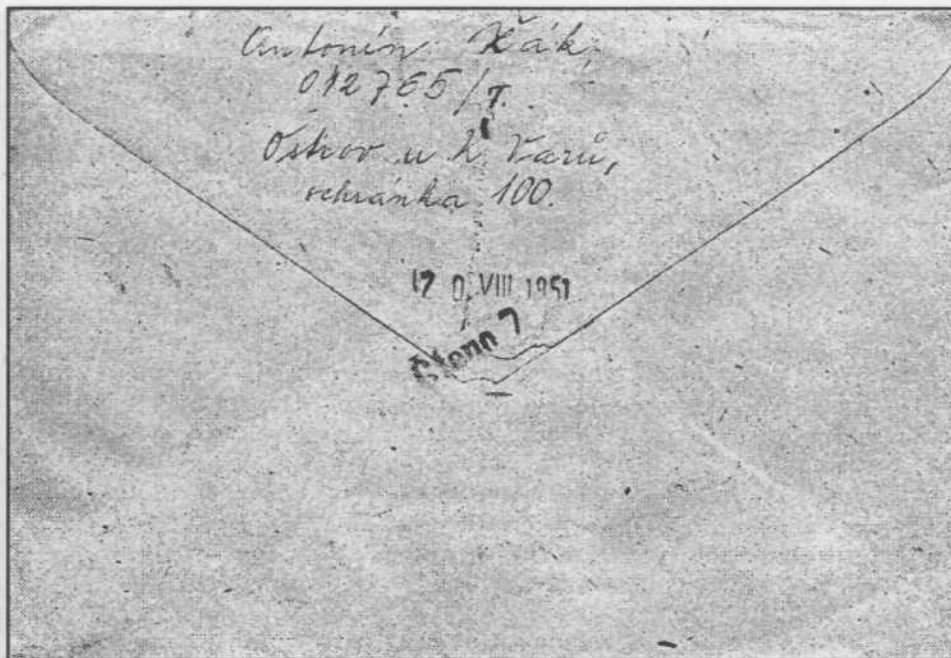 Antonín Žák,
012765/T.
Ostrov u K. Varů,
schránka 100.
17 0. VIII 1951
Čteno 7